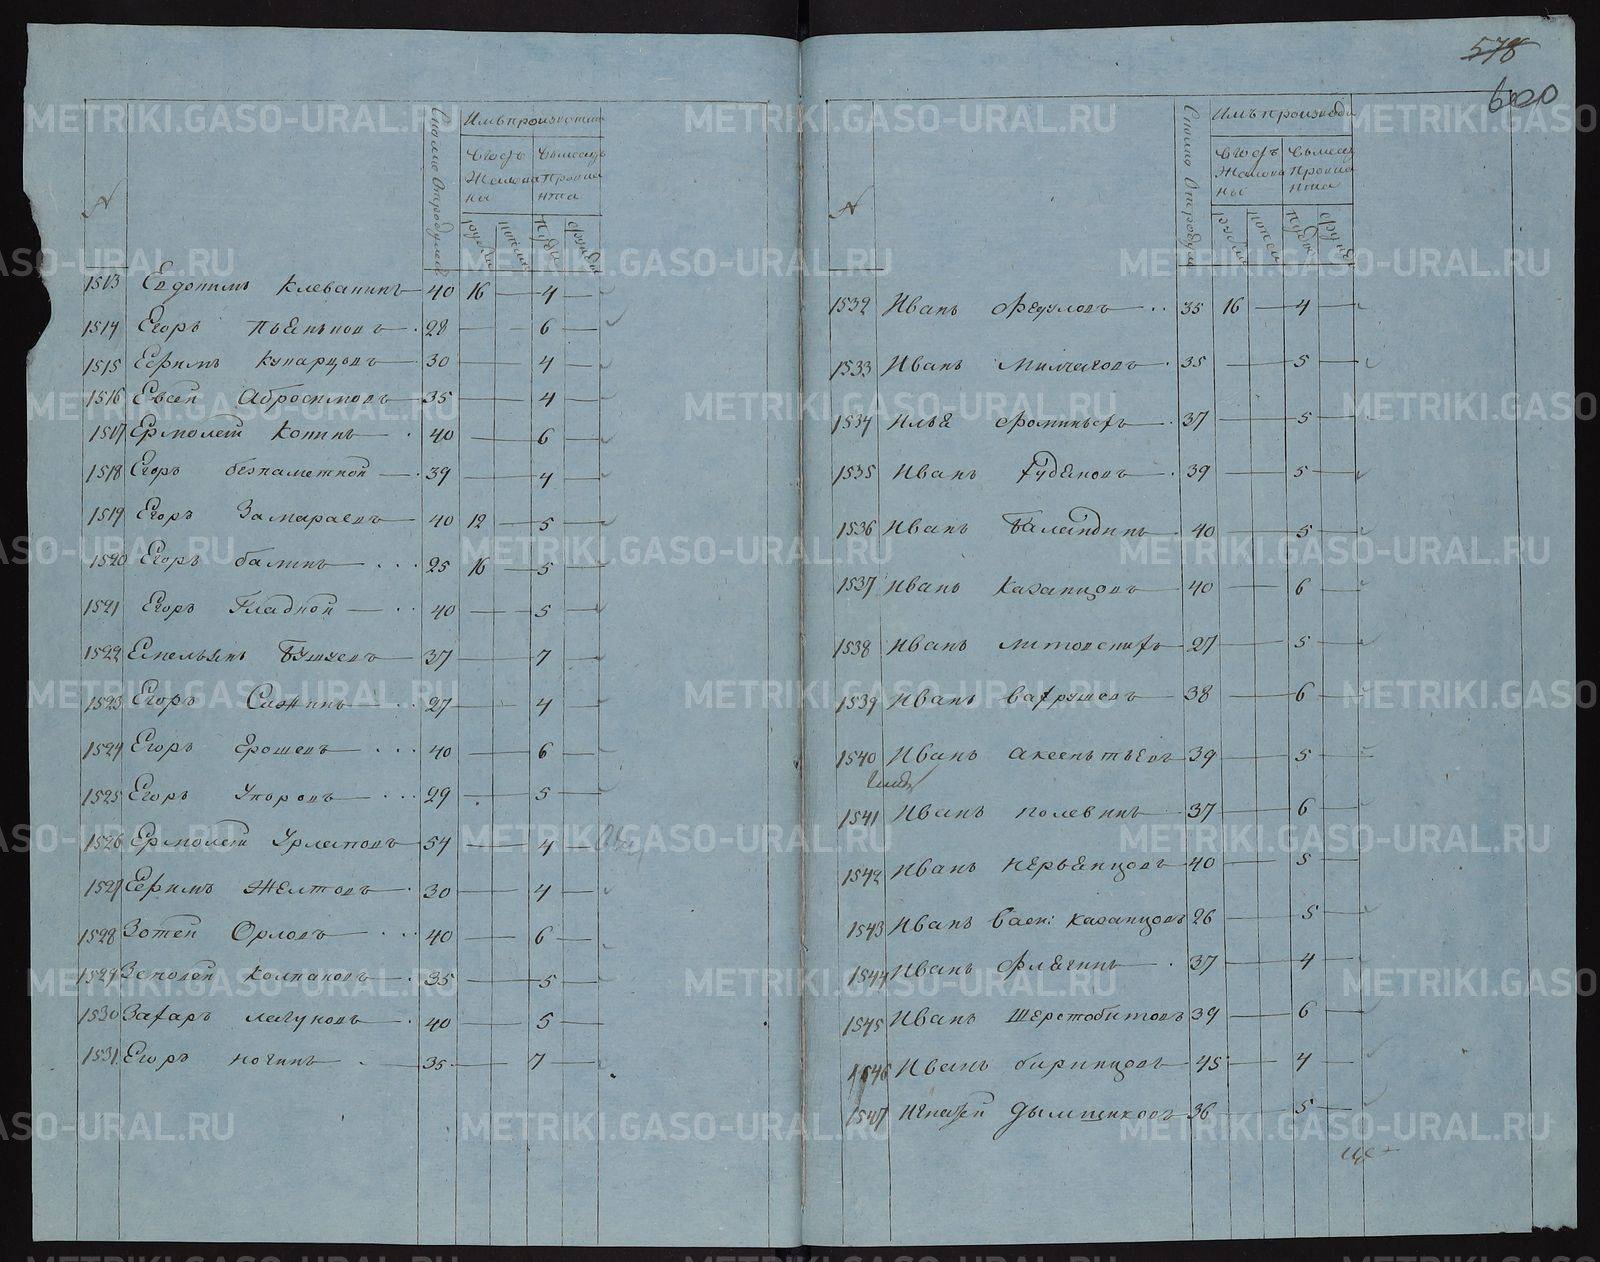 578
600
№
Сколко отроду лѣтъ
Имъ производи
Въ годъ Жалова нья
Въ месяцъ Провиа нта
рубли
копеи
Пуды
фунты
1513 Евдокимъ Клеванинъ 40 16 — 4 —
1514 Егоръ Пьянковъ 28 — 6 —
1515 Ефимъ Кунарцовъ 30 — 4 —
1516 Евсей Абросимовъ 35 — 4 —
1517 Ермолей Копинъ 40 — 6 —
1518 Егоръ безпаметной 39 — 4 —
1519 Егоръ Замараевъ 40 12 — 5 —
1520 Егоръ балинъ 25 16 — 5 —
1521 Егоръ Гладкой 40 — 5 —
1522 Емельянъ Бушуевъ 37 — 7 —
1523 Егоръ 27 — 4 —
1524 Егоръ Ярошевъ 40 — 6 —
1525 Егоръ Упоровъ 29 5 —
1526 Ермолей 54 — 4
1527 Ефимъ Желтовъ 30 — 4 —
1528 Зотей Орловъ 40 — 6 —
1529 Колпаковъ 35 — 5 —
1530 Захаръ лагуновъ 40 — 5 —
1531 Егоръ кочинъ 35 — 7 —
№
Сколко отроду лѣтъ
Имъ производи
Въ годъ Жалова нье
Въ месяц Провиа нта
рубли
копеи
Пуды
фунд
1532 Иванъ Федуловъ 35 16 — 4 —
1533 Иванъ Милчаговъ 35 — 5 —
1534 Илья Фоминыхъ 37 — 5 —
1535 Иванъ Худяковъ 39 — 5 —
1536 Иванъ Баландинъ 40 — 5 —
1537 Иванъ Казанцовъ 40 — 6 —
1538 Иванъ Литовскихъ 27 — 5 —
1539 Иванъ Вахрушевъ 38 — 6 —
1540 Иванъ Аксентьевъ 39 — 5 —
1541 Иванъ Полевинъ 37 — 6 —
1542 Иванъ Невьянцовъ 40 — 5 —
1543 Иванъ Васи: Казанцовъ 26 — 5 —
1544 Иванъ Флягинъ 37 — 4 —
1545 Иванъ Шерстобитовъ 39 — 6 —
1546 Иванъ 45 — 4 —
1547 Игнатей Дымшиковъ 36 — 5 —
METRIKI.GASO-URAL.RU